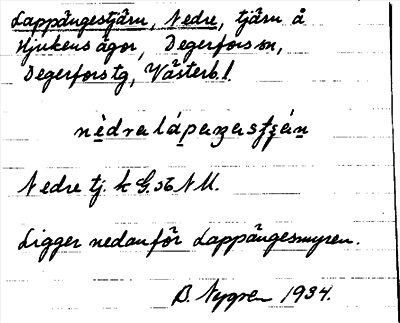 Lappängestjärn, Nedre, tjärn å
Hjukens ägor, Degerfors sn,
Degerfors tg, Västerb. l.
nèdra lápaŋastján
Nedre tj. k G. 56 NU.
Ligger nedanför Lappängesmyren.
B. Nygren 1934.